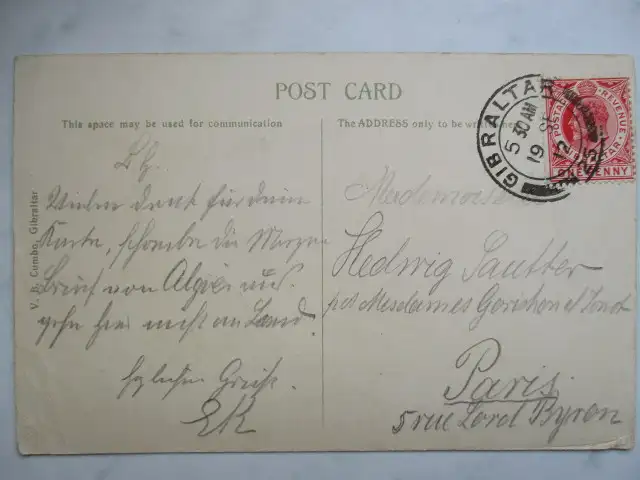 POST CARD
This space may be used for communication
The ADDRESS only to be
GIBRALTAR
5 30 AM
19
12
POSTAGE & REVENUE
GIBRALTAR
PENNY
V. B. Cumbo, Gibraltar
Lg.
Vielen Dank für deine
Karte, schreibe dir Morgen
Brief von Algier aus.
gehe hier nicht an Land.
herzlichen Gruß.
EK
Hedwig Sautter
Mesdames
Paris.
5 rue Lord Byron